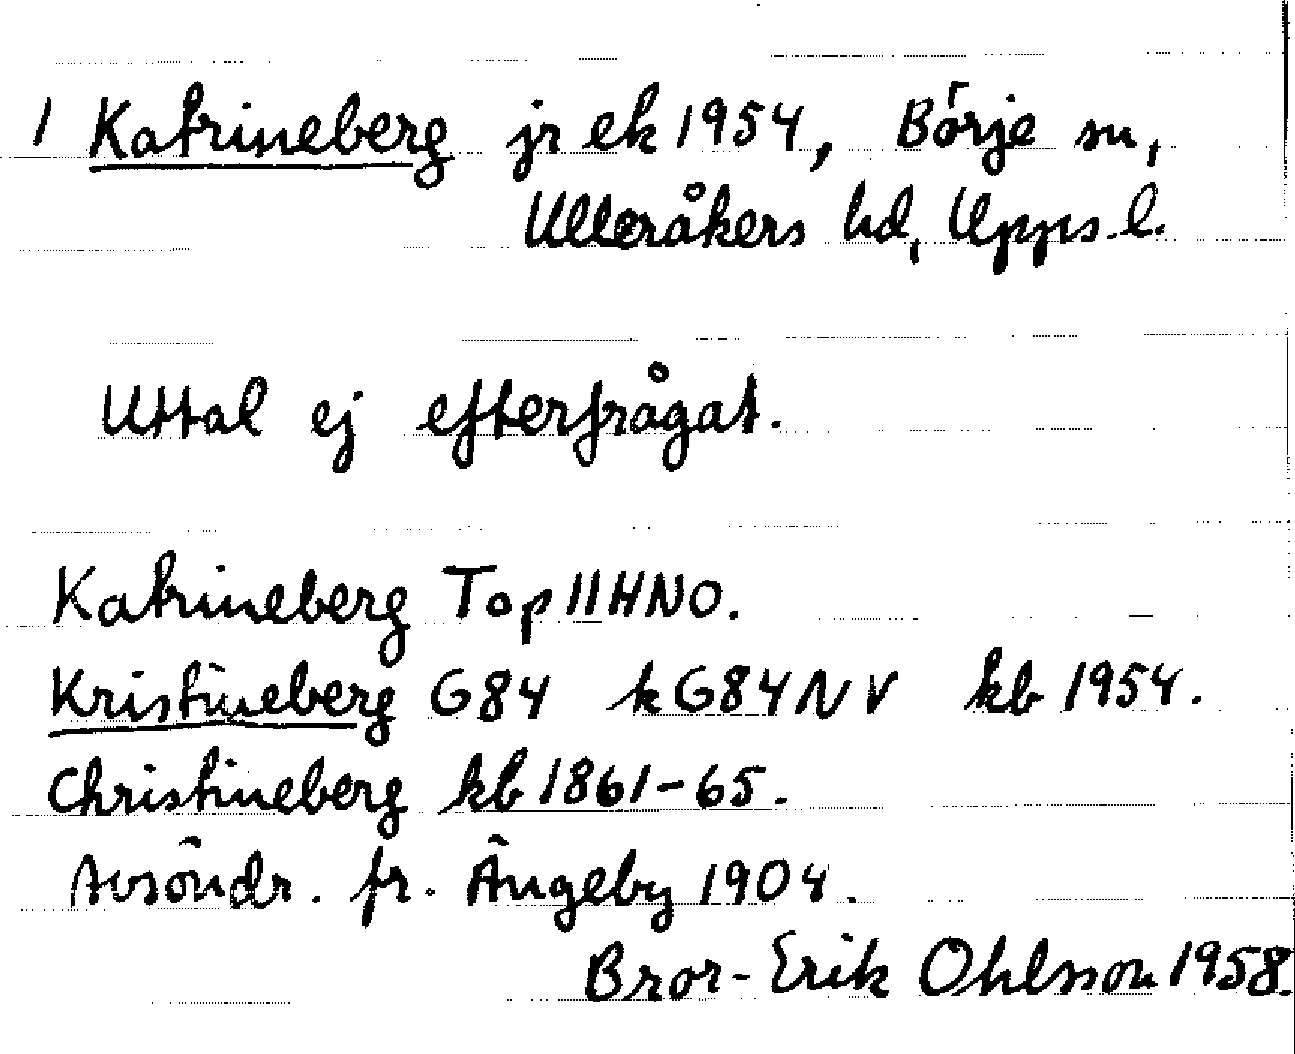 1 Katrineberg jr ek 1954, Börje sn,
Ulleråkers hd, Upps. l.
Uttal ej efterfrågat.
Katrineberg Top 11HNO.
Kristineberg G84 k G84NV kb 1954.
Christineberg kb 1861-65.
Avsöndr. fr. Ängeby 1904.
Bror-Erik Ohlsson 1958.